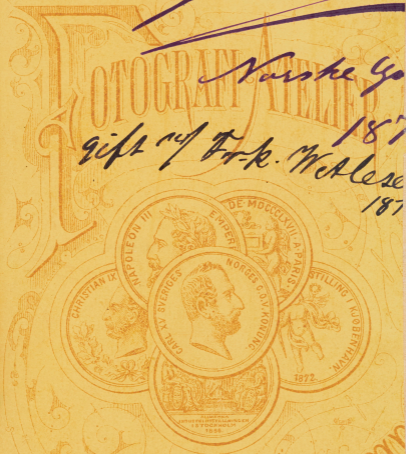 FOTOGRAFI ATELIER
Norske
187
gift m/ Frk. Wetlese
187
NAPOLEON III EMPER
DE MDCCCLXVII A PARIS
CHRISTIAN IX
CARL XV SVERIGES NORGES G.O.V. KONUNG
STILLING I KJØBENHAVN
1872